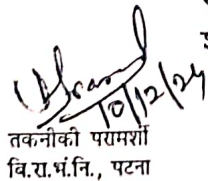 10/12/24
तकनीकी परामर्शी
वि.रा.भं.नि., पटना